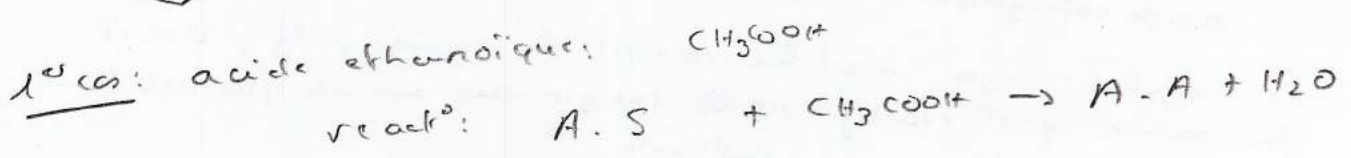 1er cas: acide ethanoïque: CH3COOH
react°: A.S + CH3COOH → A.A + H2O